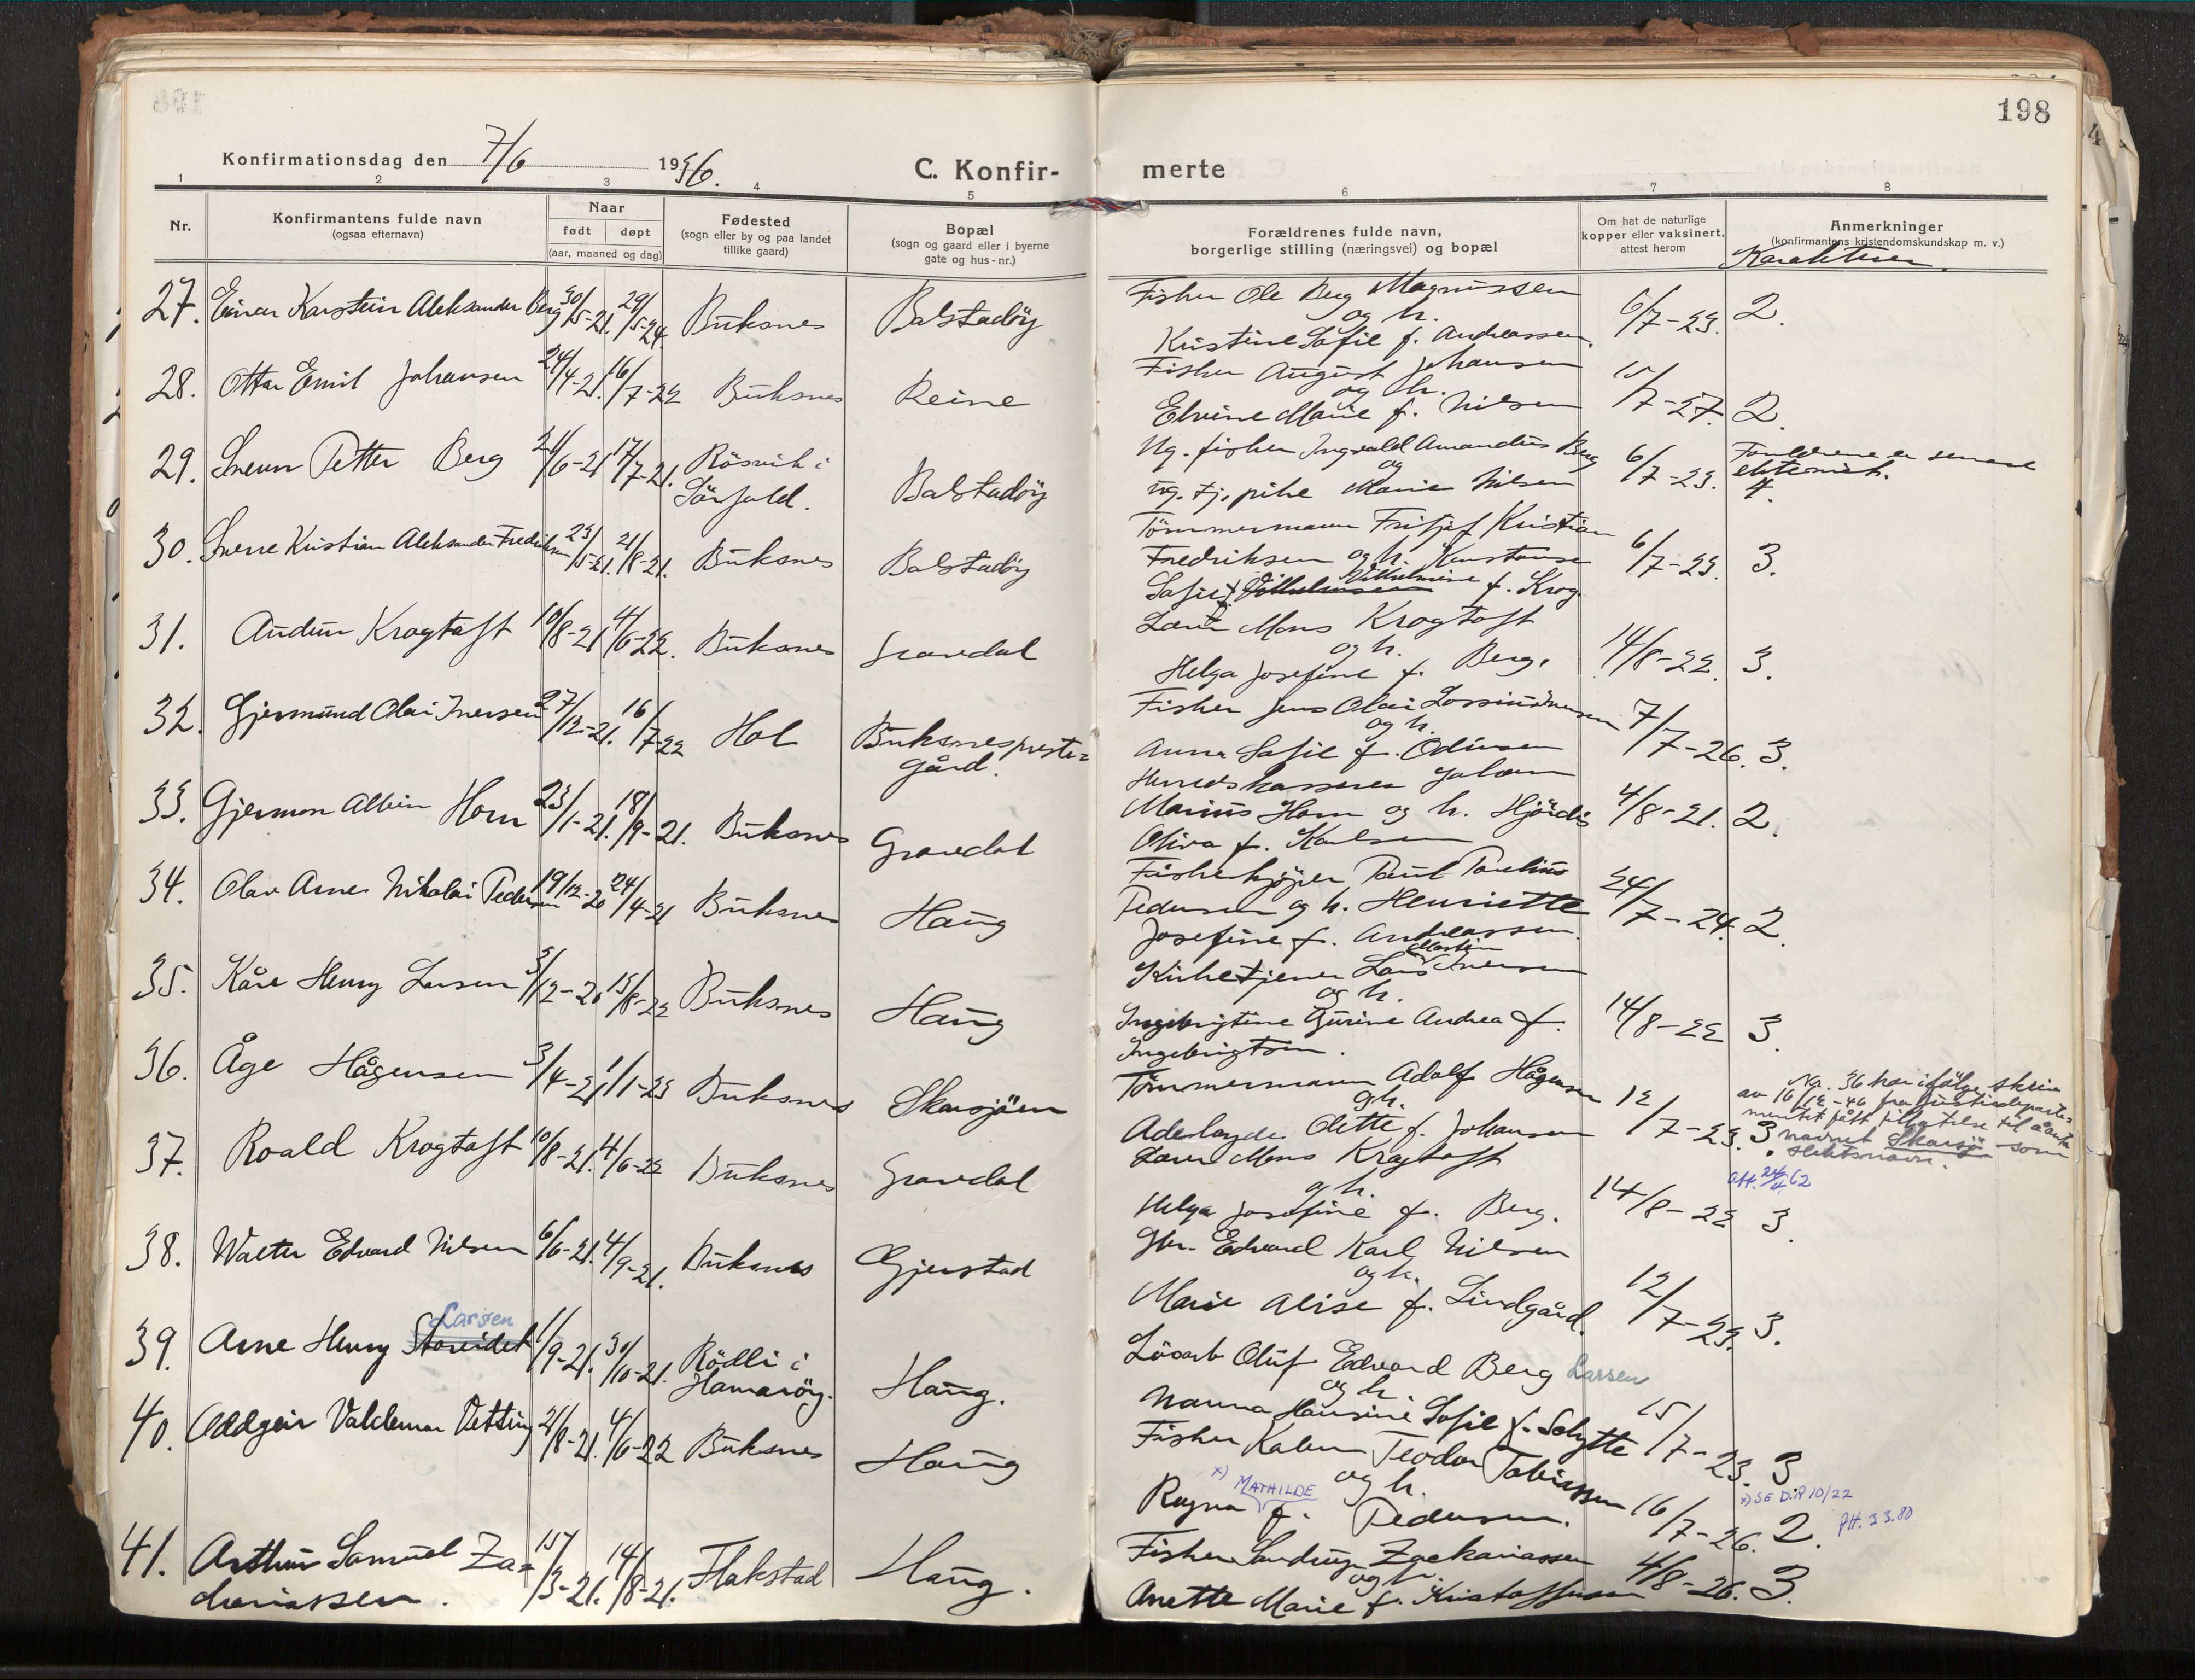 198
Konfirmationsdag den 7/6 1936.
C. Konfir-
merte
1 2 3 4 5 6 7 8
Nr.
Konfirmantens fulde navn
(ogsaa efternavn)
Naar
født døpt
(aar, maaned og dag)
Fødested
(sogn eller by og paa landet
tillike gaard)
Bopæl
(sogn og gaard eller i byerne
gate og hus-nr.)
Forældrenes fulde navn,
borgerlige stilling (næringsvei) og bopæl
Om hat de naturlige
kopper eller vaksinert,
attest herom
Anmerkninger
(konfirmantens kristendomskundskap m. v.)
Karakterer.
27. Einar Karstein Aleksander Berg 30/5-21. 29/5-24. Buksnes Balstadöy
Fisker Ole Berg Magnussen
og h.
Kristine Sofie f. Andreassen. 6/7-23. 2.
28. Ottar Emil Johansen 24/4-21. 16/7-22 Buksnes Reine
Fisker August Johansen
og h.
Elvine Marie f. Nilsen 15/7-27. 2.
29. Svenn Petter Berg 21/6-21 17/7-21. Rösvik i
Sörfold. Balstadöy
Ug. fisker Ingvald Amandus Berg
og
ug. tj. pike Marie Nilsen 6/7-23. Foreldrene er senere
ektevidd.
4.
30. Sverre Kristian Aleksander Fredriksen 23/5-21. 21/8-21. Buksnes Balstadöy
Tömmermann Fritjof Kristian
Fredriksen og h. Konstanse
Sofie Vilhelmine f. Krog 6/7-23. 3.
31. Audun Krogtoft 10/8-21 4/6-22. Buksnes Gravdal
Lærer Mons Krogtoft
og h.
Helga Josefine f. Berg. 14/8-22. 3.
32. Gjermund Olai Iversen 27/12-21. 16/7-22 Hol Buksnes preste-
gård.
Fisker Jens Olai Iversen
og h.
Anna Sofie f. Odinsen 7/7-26. 3.
33. Gjermon Albin Horn 23/1-21. 18/9-21. Buksnes Gravdal
Herredskasserer Johan
Marius Horn og h. Hjördis
Oliva f. Karlsen 4/8-21. 2.
34. Olav Arne Nikolai Pedersen 19/12-20 24/4-21 Buksnes Haug
Fiskekjöper Paul Paulius
Pedersen og h. Henriette
Josefine f. Andreassen. 24/7-24. 2.
35. Kåre Henry Larsen 3/12-20 15/8-22 Buksnes Haug
Martin
Kirketjener Lars Iversen
og h.
Ingebrigtine Gurine Andrea f.
Ingebrigtsen. 14/8-22 3.
36. Åge Hågensen 3/4-21 1/1-23 Buksnes Skarsjöen
Tömmermann Adolf Hågensen
og h.
Aderlayde Olette f. Johansen 12/7-23. 3.
Nr. 36 har ifölge skriv
av 16/12-46 fra Justisdeparte-
mentet fått tillatelse til å anta
navnet Skarsjö som
slektsnavn.
Att. 24/4 62
37. Roald Krogtoft 10/8-21. 4/6-22 Buksnes Gravdal
Lærer Mons Krogtoft
og h.
Helga Josefine f. Berg. 14/8-22 3.
38. Walter Edvard Nilsen 6/6-21. 4/9-21. Buksnes Gjerstad
Gbr. Edvard Karl Nilsen
og h.
Marie Alise f. Lindgård. 12/7-23. 3.
Larsen
39. Arne Henry Storeidet 1/9-21. 30/10-21. Rödli i
Hamaröy. Haug.
Lösarb Oluf Edvard Berg Larsen
og h.
Nanna Hansine Sofie f. Schytte 15/7-23. 3
40. Oddgeir Valdemar Vetting 21/8-21. 4/6-22 Buksnes Haug
Fisker Teodor Tobiassen
og h.
x) MATHILDE
Ragna f. Pedersen. 16/7-26. 2.
x) SE D.P 10/22
41. Arthur Samuel Za-
kariassen. 15/3-21. 14/8-21. Flakstad Haug.
Fisker Zackariassen
og h.
Anette Marie f. Kristoffersen 4/8-26. 3.